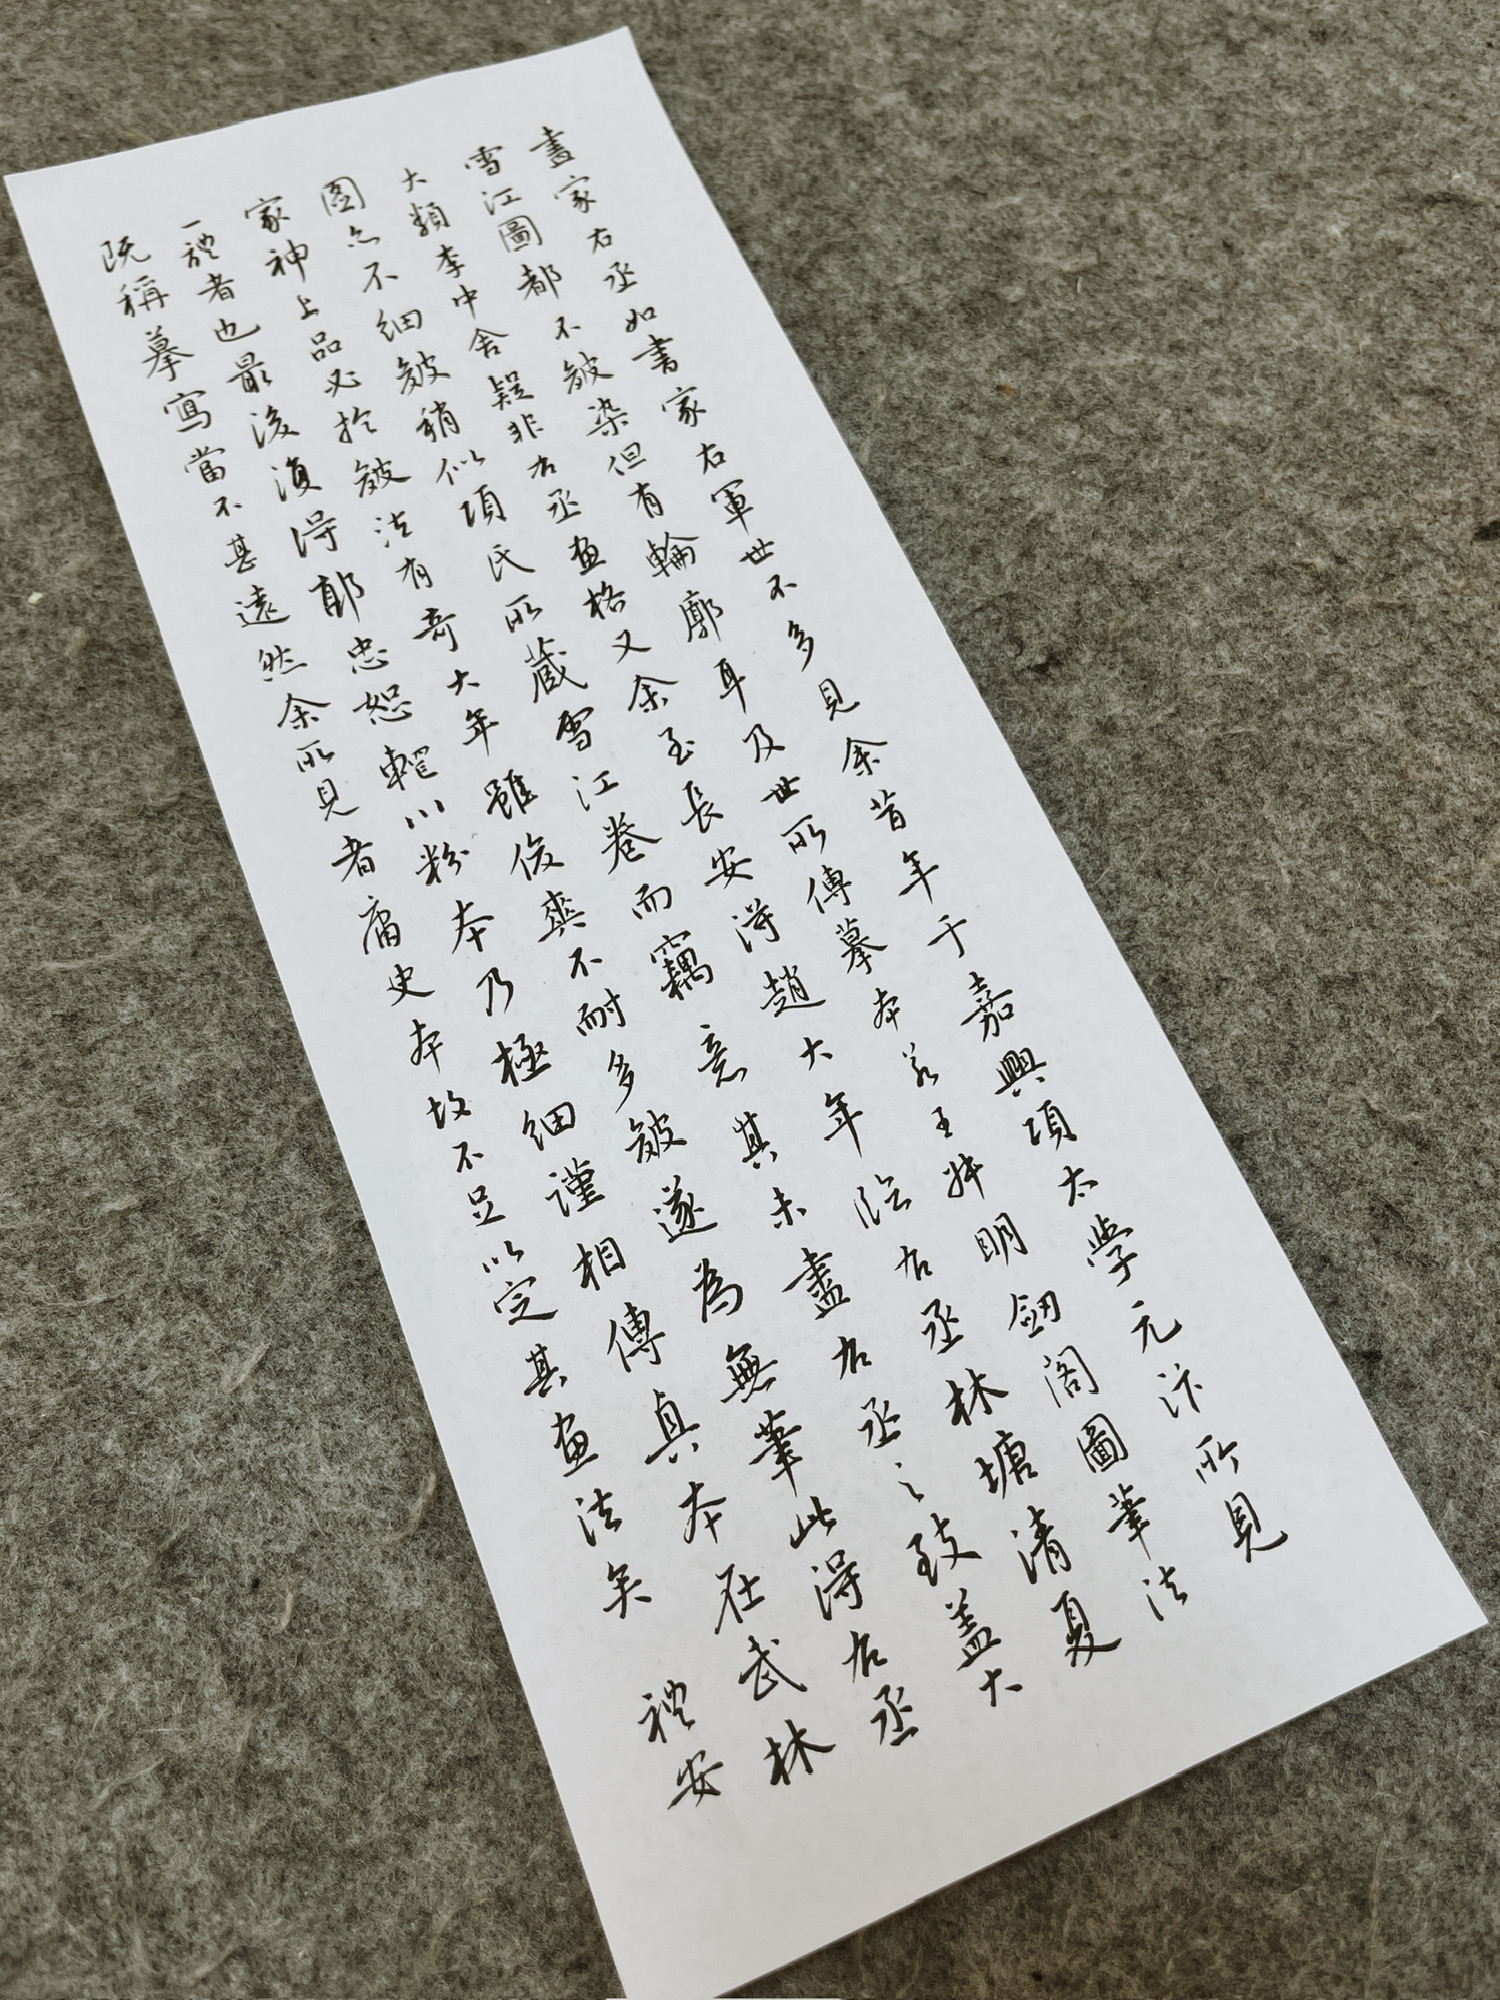 畫家右丞如書家右軍世不多見余昔年于嘉興項太學元汴所見
雪江圖都不皴染但有輪廓耳及世所傳摹本若王叔明劒閣圖筆法
大類李中舍疑非右丞画格又余至長安得趙大年臨右丞林塘清夏
圖亦不細皴稍似項氏所藏雪江卷而竊意其未盡右丞之致蓋大
家神上品必於皴法有奇大年雖俊爽不耐多皴遂為無筆此得右丞
一體者也最後復得郭忠恕輞川粉本乃極細謹相傳真本在武林
既稱摹寫當不甚遠然余所見者庸史本故不足以定其画法矣 禮安